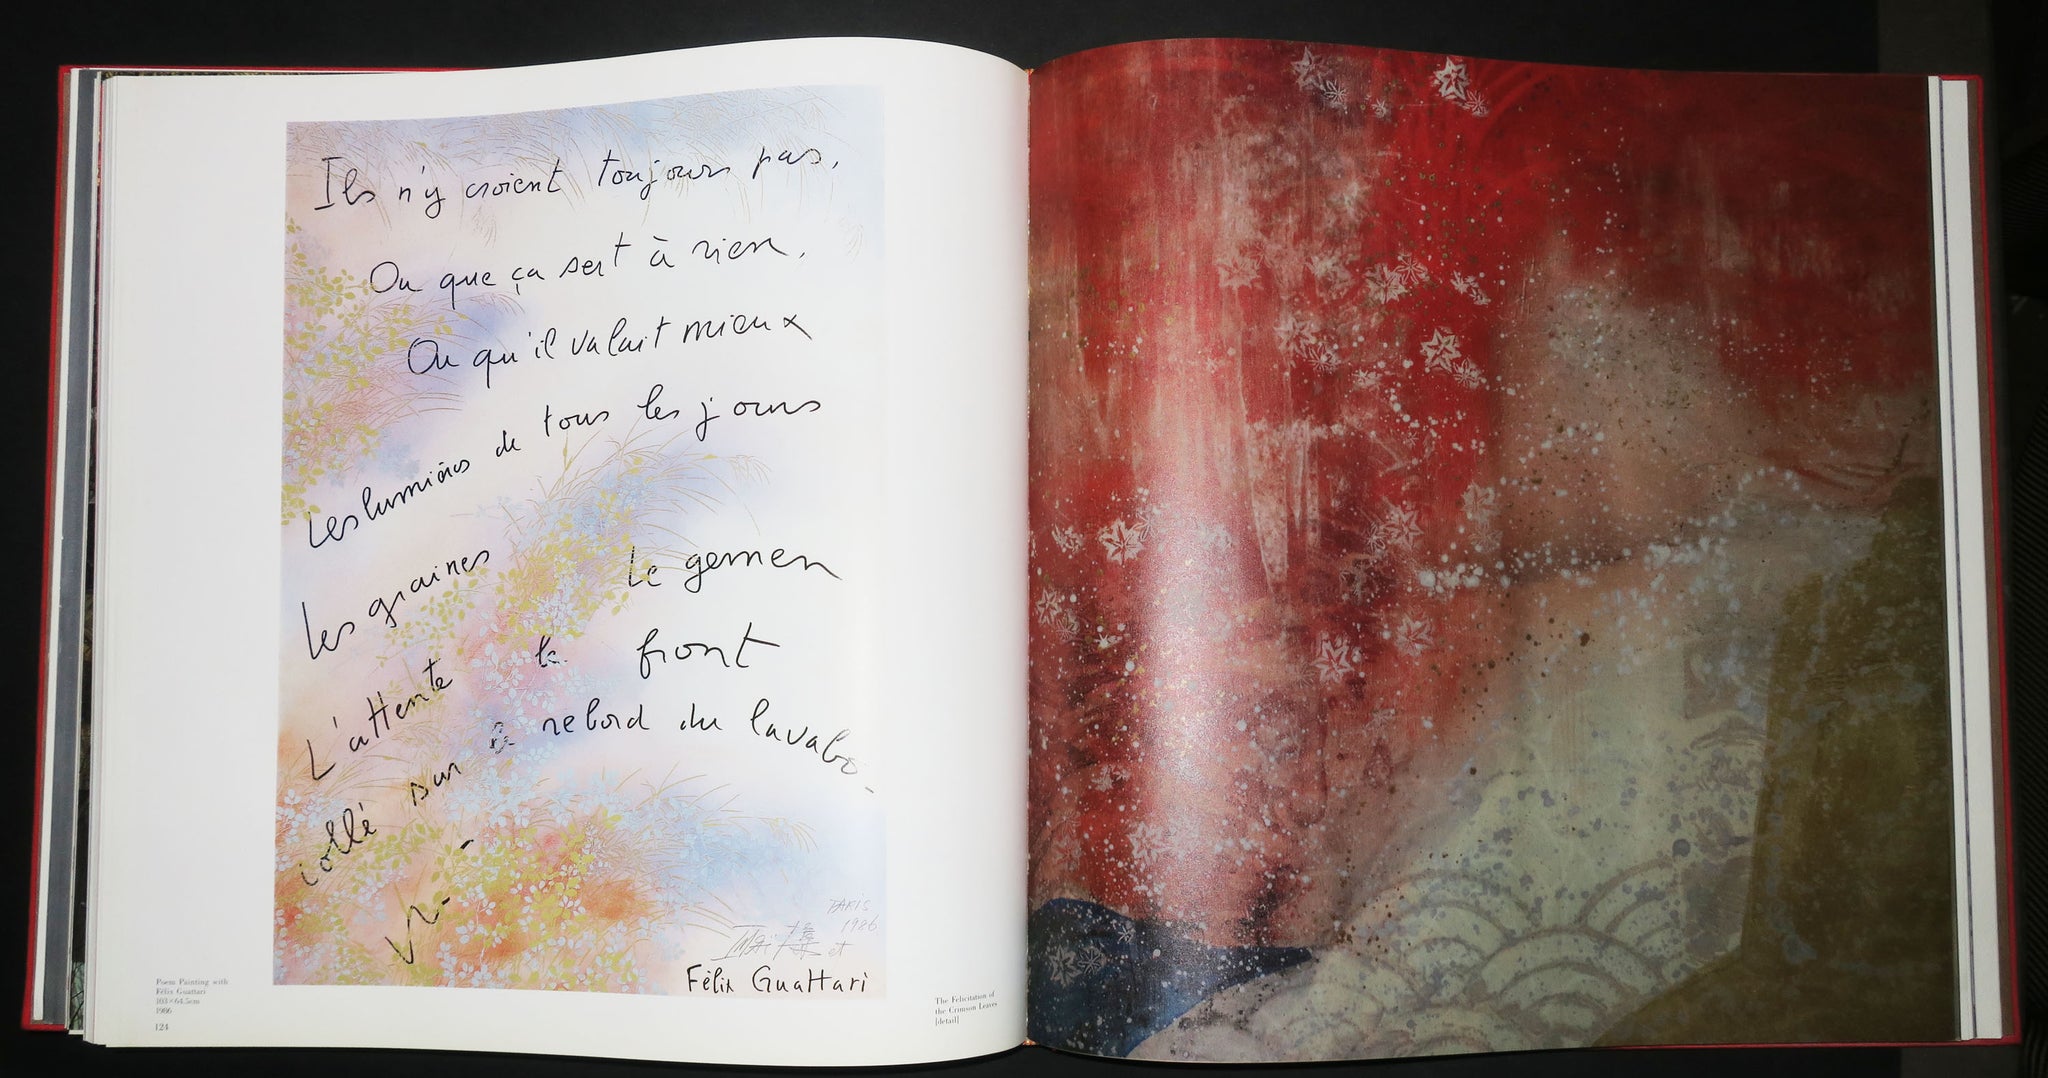 Ils n'y croient toujours pas.
Ou que ça sert à rien.
Ou qu'il valait mieux
Les lumières de tous les jours
Les graines
Le germen
L'attente
le front
collé sur le rebord du lavabo.
PARIS
1986
et
Félix Guattari
Poem Painting with
Félix Guattari
103×64.5cm
1986
124
The Felicitation of
the Crimson Leaves
[detail]